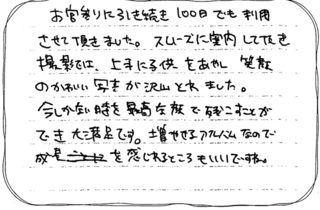 お宮参りに引き続き100日でも利用
させて頂きました。スムーズに案内して頂き
撮影では、上手に子供をあやし 笑顔
のかわいい写真が沢山とれました。
今しかない時を最高な形で残こすことが
でき大満足です。増やせるアルバムなので
成長を感じれるところもいいですね。